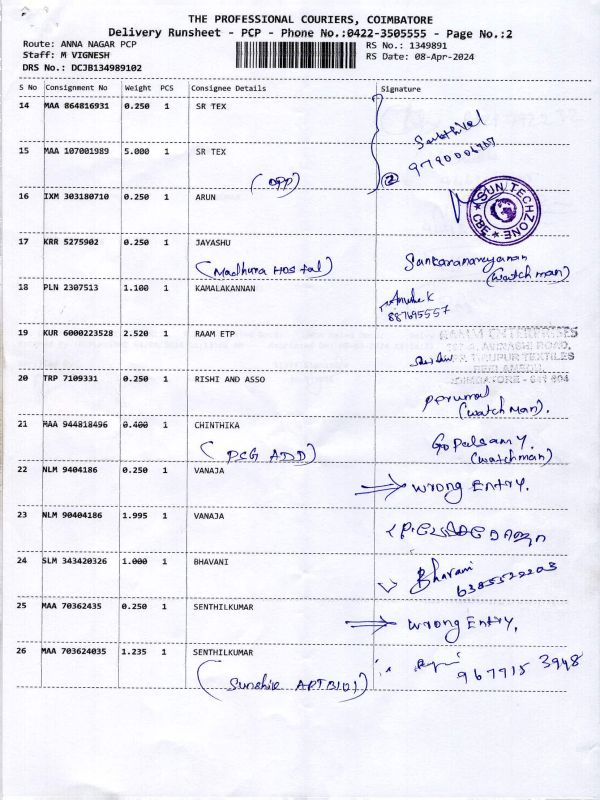 THE PROFESSIONAL COURIERS, COIMBATORE
Delivery Runsheet - PCP - Phone No.:0422-3505555 - Page No.:2
Route: ANNA NAGAR PCP
RS No.: 1349891
Staff: M VIGNESH
RS Date: 08-Apr-2024
DRS No.: DCJB134989102
S No Consignment No Weight PCS Consignee Details Signature
14 MAA 864816931 0.250 1 SR TEX
Senthil
15 MAA 107001989 5.000 1 SR TEX
(OPP) ②
16 IXM 303180710 0.250 1 ARUN
SUN TECHZONE CBE
17 KRR 5275902 0.250 1 JAYASHU
(Madhura Hostal) Sankaranarayanan
(watch man)
18 PLN 2307513 1.100 1 KAMALAKANNAN
887695557
19 KUR 6000223528 2.520 1 RAAM ETP
ENTERPRISES
AVINASHI ROAD,
TIRUPUR TEXTILES
COIMBATORE - 641 004
20 TRP 7109331 0.250 1 RISHI AND ASSO
perumal
(watchman).
21 MAA 944818496 0.400 1 CHINTHIKA
(PCG ADD) Gopalsamy.
(watchman)
22 NLM 9404186 0.250 1 VANAJA
wrong Entry.
23 NLM 90404186 1.995 1 VANAJA
24 SLM 343420326 1.000 1 BHAVANI
Bhavani
6385522203
25 MAA 70362435 0.250 1 SENTHILKUMAR
wrong Entry.
26 MAA 703624035 1.235 1 SENTHILKUMAR
967715 3948
(Sunshine APT B101)